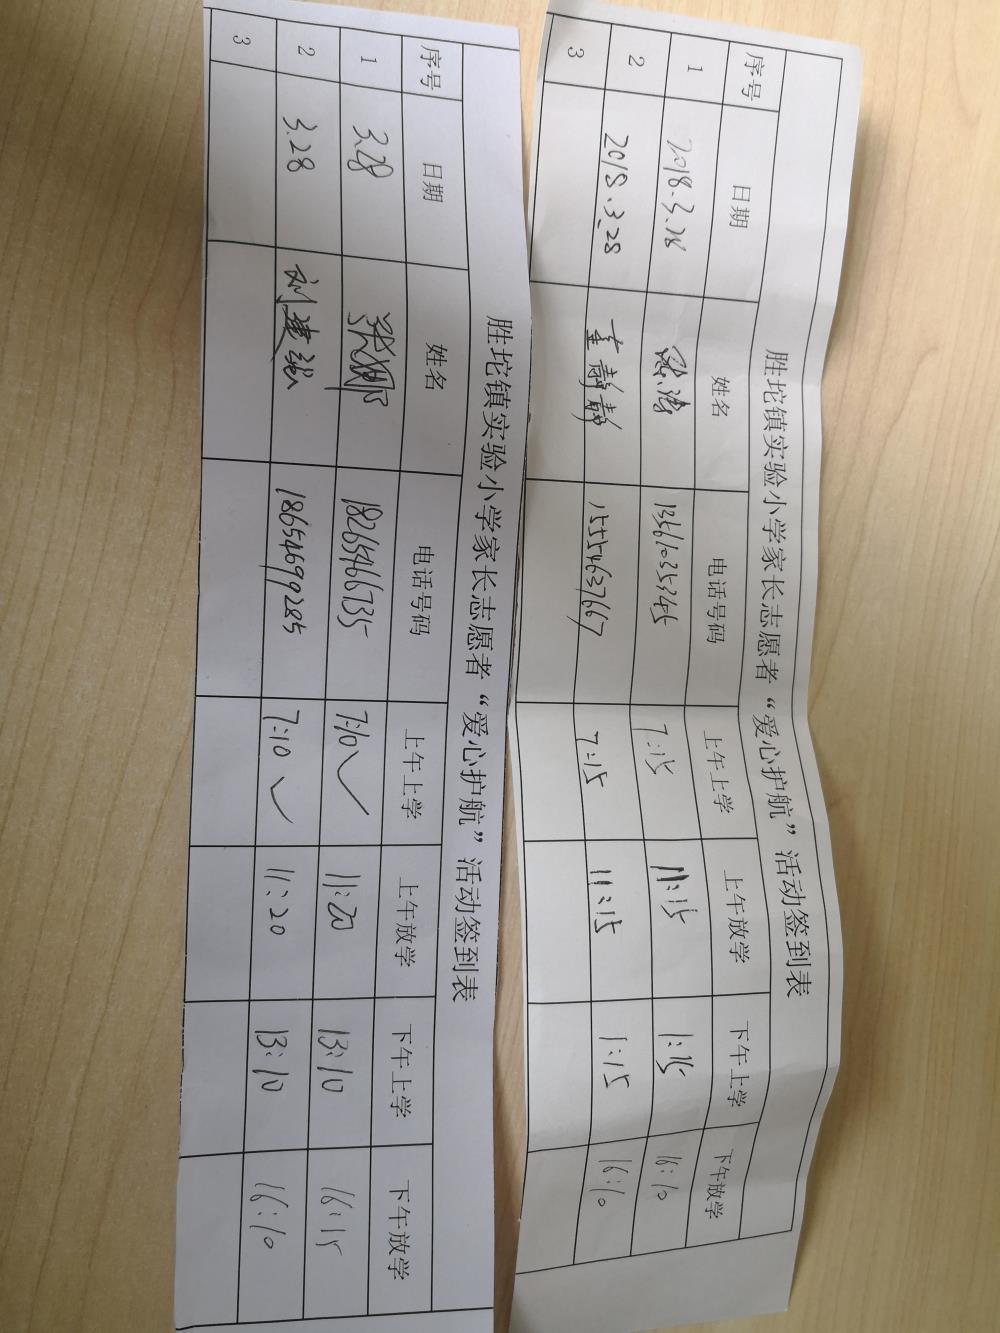 胜坨镇实验小学家长志愿者“爱心护航”活动签到表
序号 日期 姓名 电话号码 上午上学 上午放学 下午上学 下午放学
1 2018.3.28 13561035345 7:15 11:15 1:15 16:10
2 2018.3.28 董静静 15554637667 7:15 11:15 1:15 16:10
3
胜坨镇实验小学家长志愿者“爱心护航”活动签到表
序号 日期 姓名 电话号码 上午上学 上午放学 下午上学 下午放学
1 3.28 18265466735 7:10 ✓ 11:20 13:10 16:15
2 3.28 刘建 18654699285 7:10 ✓ 11:20 13:10 16:10
3